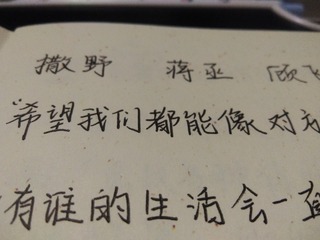 撒野 蒋丞 顾飞
“希望我们都能像对方
有谁的生活会一直